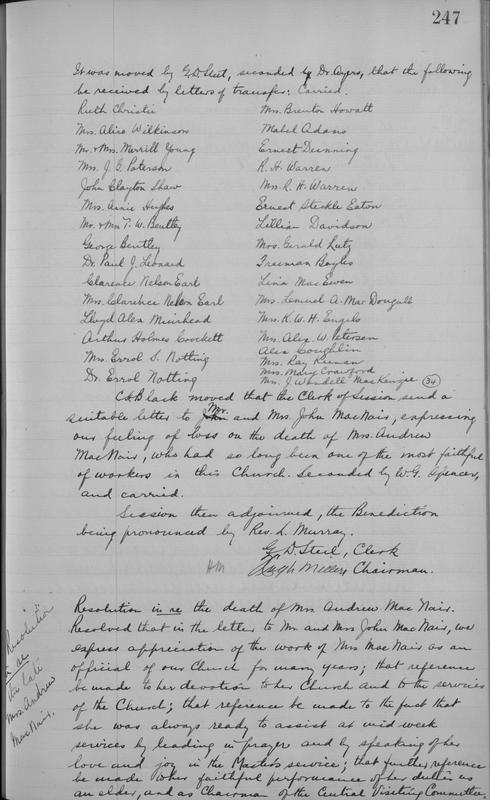 247
It was moved by G.D. Steel, seconded by Dr. Ayers, that the following
be received by letters of transfer: Carried.
Ruth Christie
Mrs. Alice Wilkinson
Mr. & Mrs. Merrill Young
Mrs. J. G. Paterson
John Clayton Shaw
Mrs. Annie Hughes
Mr. & Mrs T. W. Bentley
George Bentley
Dr. Paul J. Leonard
Clarence Nelson Earl
Mrs. Clarence Nelson Earl
Lloyd Alex Muirhead
Arthur Holmes Crockett
Mrs. Errol S. Notting
Dr. Errol Notting
Mrs. Brenton Howatt
Mabel Adams
Ernest Dunning
R. H. Warren
Mrs. R. H. Warren
Ernest Steckle Eaton
Lillian Davidson
Mrs. Gerald Lutz
Freeman Boyles
Lina MacEwen
Mrs. Lemuel A. MacDougall
Mrs. K. W. H. Engels
Mrs. Alex. W. Petersen
Alex Coughlin
Mrs. Ray Kiernan
Mrs. Mary Crawford
Mrs. J. Wendell MacKenzie (34)
Black moved that the Clerk of Session send a
suitable letter to Mr. and Mrs. John MacNair, expressing
our feeling of loss on the death of Mrs. Andrew
MacNair, who had so long been one of the most faithful
of workers in this Church. Seconded by W.G. Spencer,
and carried.
Session then adjourned, the Benediction
being pronounced by Rev. L. Murray.
G. D. Steel, Clerk
HM Hugh Miller Chairman.
Resolution in re the late Mrs. Andrew MacNair.
Resolution in re the death of Mrs. Andrew MacNair.
Resolved that in the letter to Mr and Mrs John MacNair, we
express appreciation of the work of Mrs MacNair as an
official of our Church for many years; that reference
be made to her devotion to her Church and to the services
of the Church; that reference be made to the fact that
she was always ready to assist at mid week
services by leading in prayer and by speaking of her
love and joy in the Master's service; that further reference
be made to her faithful performance of her duties as
an elder, and as Chairman of the Central Visiting Committee,